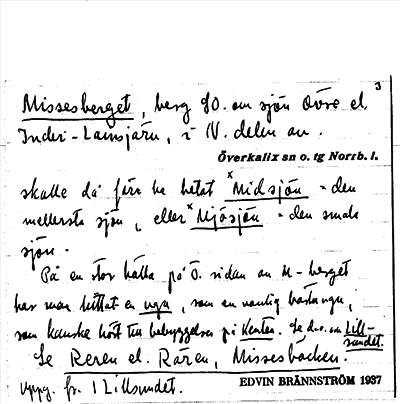 3
Missesberget, berg SO. om sjön Övre el.
Inder-Lamsjärn, i N. delen av.
Överkalix sn o. tg Norrb. l.
skulle då förr ha hetat ˣMidsjön = den
mellersta sjön, eller ˣMjösjön = den smala
sjön.
På en stor hälla på Ö. sidan av M-berget
har man hittat en ugn, som en vanlig bakugn,
som kanske hört till bebyggelsen på Kenten. Se d.o. om Lill-
sundet.
Se Reren el. Råren, Missesbäcken.
Uppg. fr. 1 Lillsundet.
EDVIN BRÄNNSTRÖM 1937